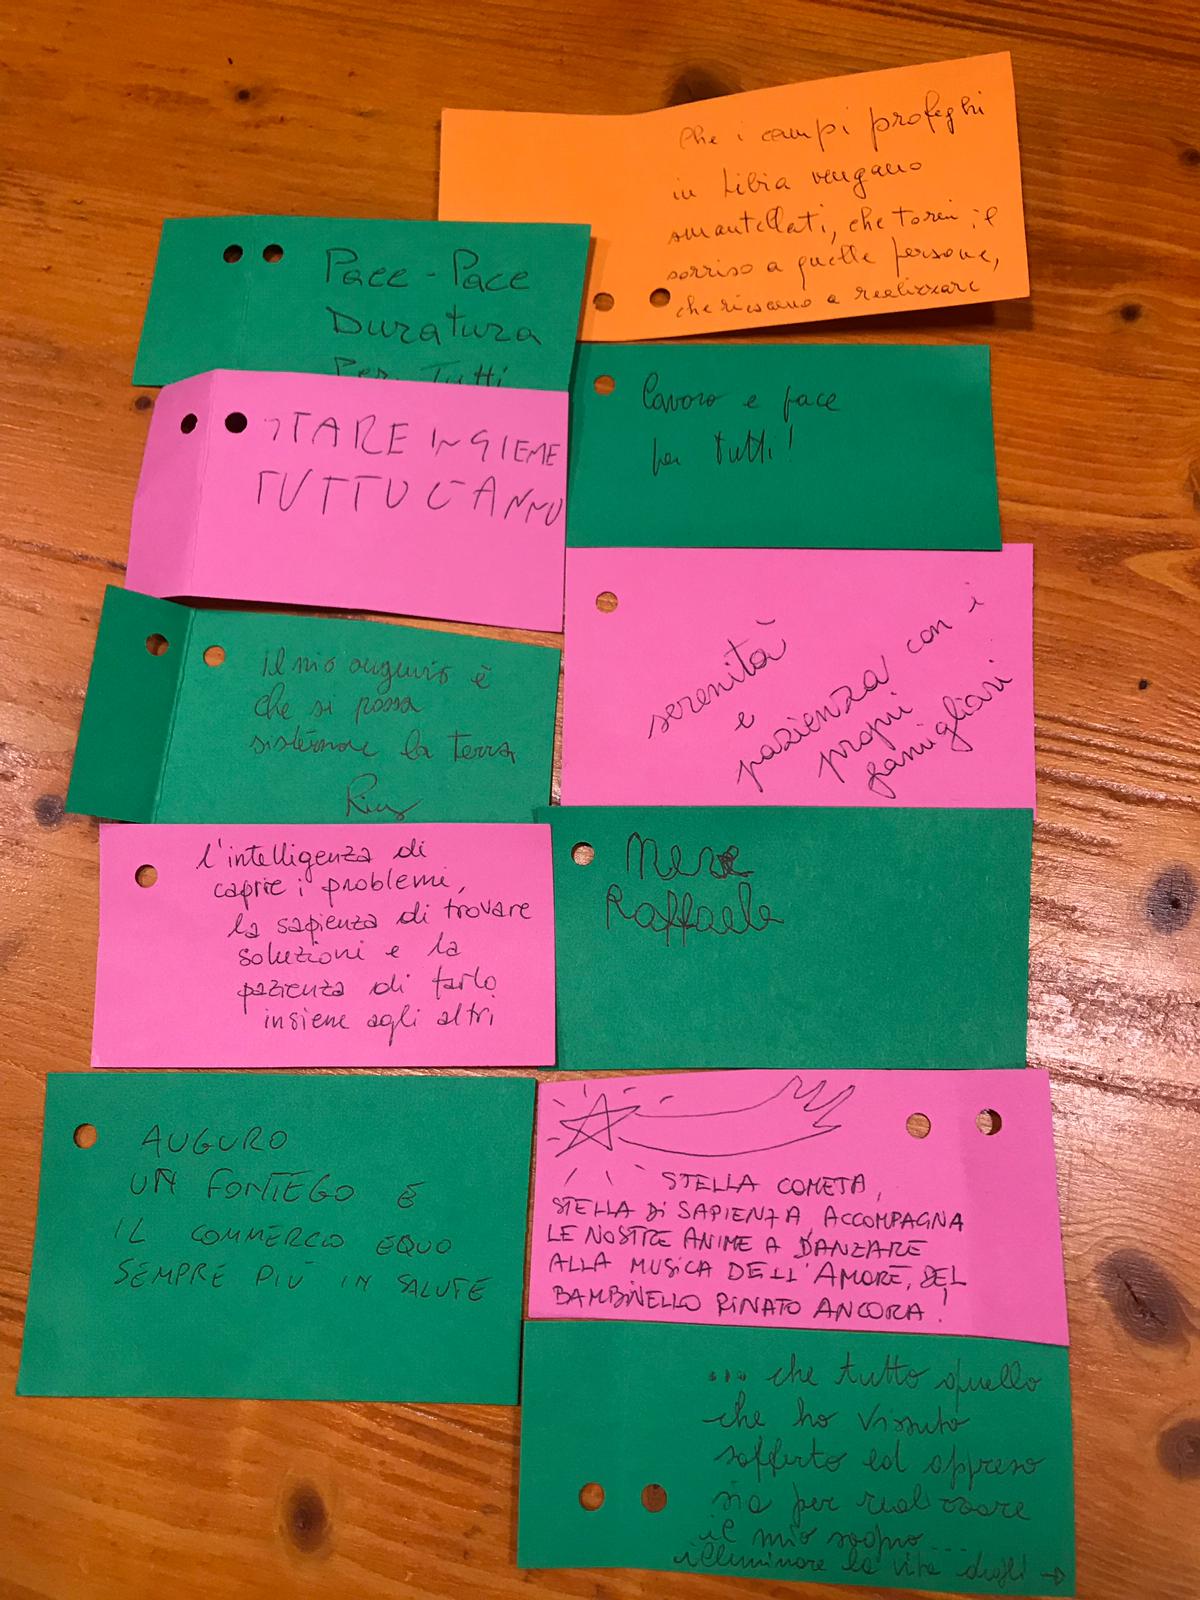 Che i campi profughi
in Libia vengano
smantellati, che torni il
sorriso a quelle persone,
che riescano a realizzare
Pace - Pace
Duratura
Per Tutti
lavoro e pace
per tutti!
STARE INSIEME
TUTTO L'ANNO
serenità
e
pazienza con i
propri
famigliari
il mio augurio è
che si possa
sistemare la terra
l'intelligenza di
capire i problemi,
la sapienza di trovare
soluzioni e la
pazienza di farlo
insieme agli altri
Raffaele
AUGURO
UN FONTEGO E
IL COMMERCIO EQUO
SEMPRE PIÙ IN SALUTE
STELLA COMETA,
STELLA DI SAPIENZA ACCOMPAGNA
LE NOSTRE ANIME A DANZARE
ALLA MUSICA DELL'AMORE, DEL
BAMBINELLO RINATO ANCORA!
... che tutto quello
che ho vissuto
sofferto ed appreso
sia per realizzare
il mio sogno...
illuminare la vita degli →